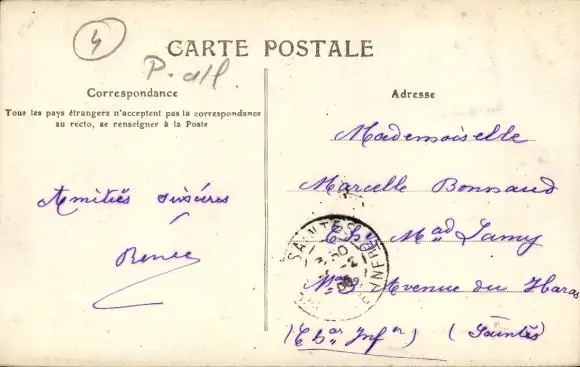 4
CARTE POSTALE
P. alf.
Correspondance
Tous les pays étrangers n'acceptent pas la correspondance
au recto, se renseigner à la Poste
Amitiés sincères
Renée
Adresse
Mademoiselle
Marcelle Bonnaud
Chez Mad Lamy
Avenue du Haras
(Chas Infer) (Saintes
SAINTES